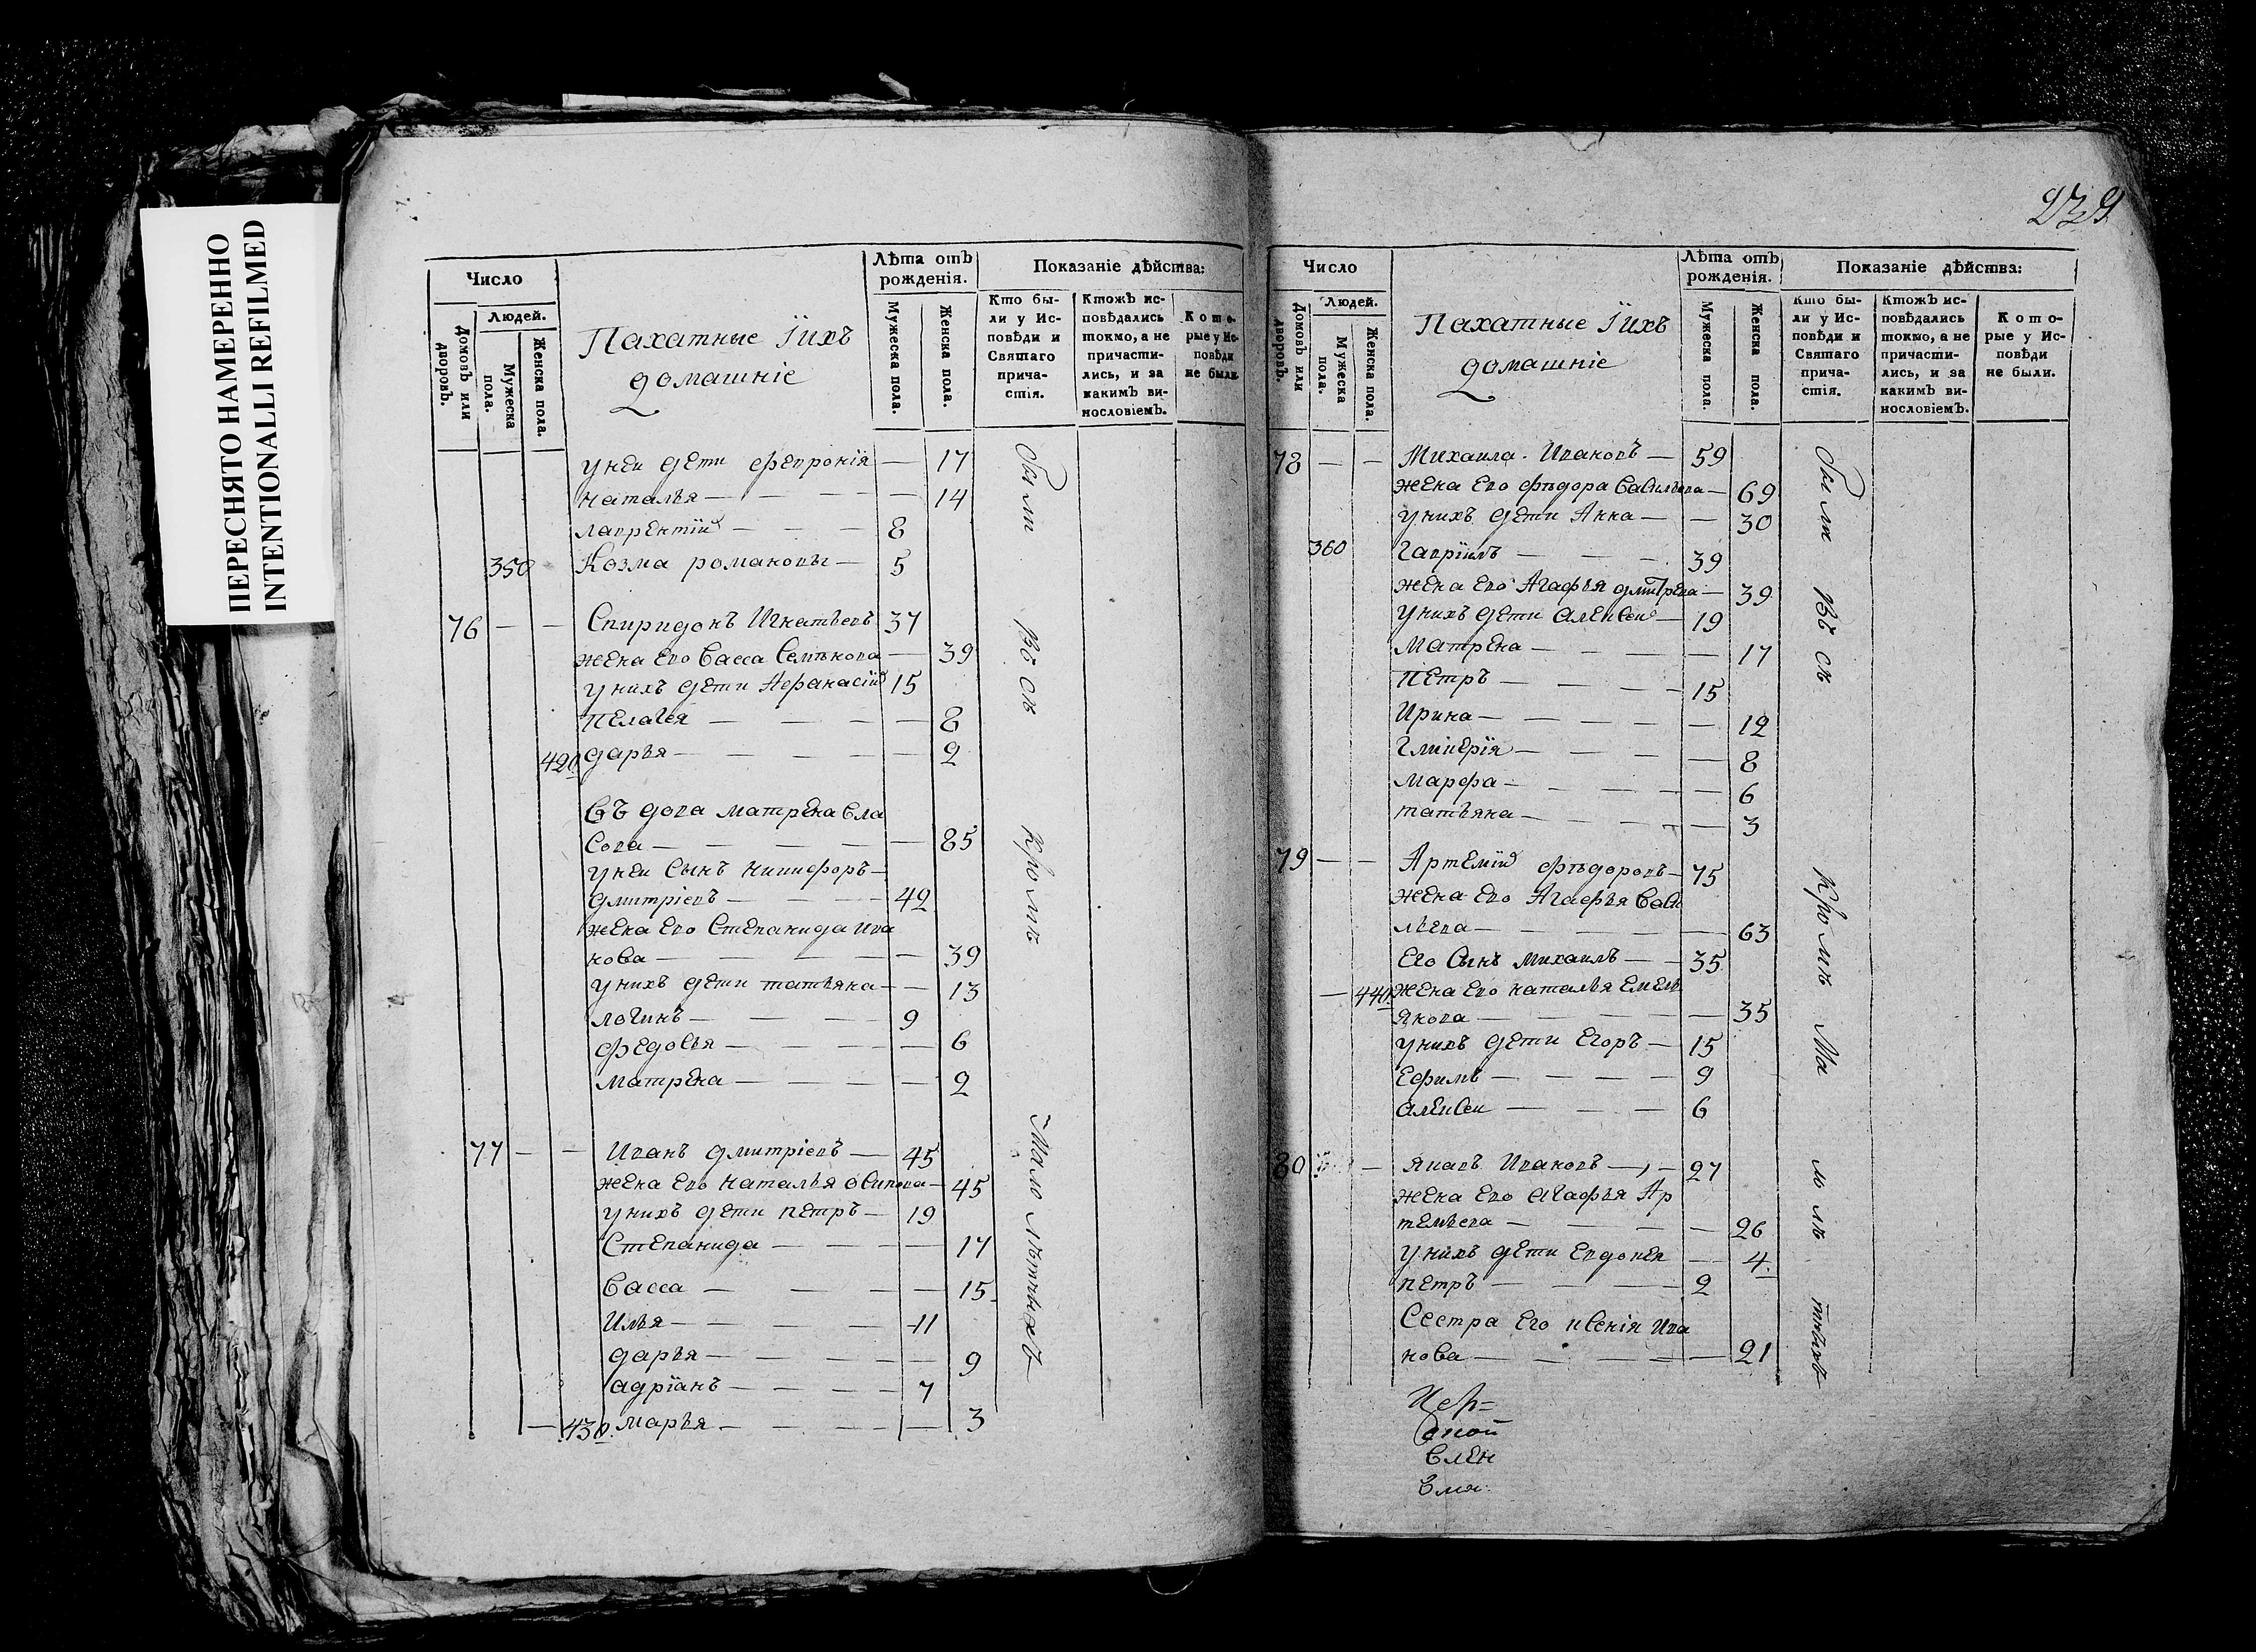 ПЕРЕСНЯТО НАМЕРЕННО
INTENTIONALLI REFILMED
Число
Людей.
Домовъ или дворовъ.
Мужеска пола.
Женска пола.
Пахатные Їихъ
домашніе
Лѣта отъ рожденія.
Мужеска пола.
Женска пола.
Показаніе дѣйства:
Кто были у Исповѣди и Святаго причастія.
Ктожъ исповѣдались токмо, а не причастились, и за какимъ винословіемъ.
Которые у Исповѣди не были.
унеи дети Февронія — 17
наталья — — — — 14
лаврентїй — — — 8
350 Козма романовы — 5
76 — — Спиридонъ Игнатьевъ 37
жена его Васса Семѣнова — 39
унихъ дети Афанасїй 15
пелагея — — — — 8
420 дарья — — — — 2
Въ дова матрена Вла
Сова — — — — — 85
унеи Сынъ никифоръ —
дмитріевъ — — — 42
жена его Степанида ива
нова — — — — — 39
унихъ дети татьяна — — 13
логинъ — — — — 9
федосья — — — — 6
матрена — — — — 2
77 — — Иванъ дмитріевъ — 45
жена его наталья Осипова — 45
унихъ дети петръ — 19
Степанида — — — 17
Васса — — — — 15
Илья — — — — 11
дарья — — — — 9
адрїанъ — — — — 7
— 430 марья — — — — 3
были
всѣ
кромѣ
малолѣтныхъ
239
Число
Людей.
Домовъ или дворовъ.
Мужеска пола.
Женска пола.
Пахатные Їихъ
домашніе
Лѣта отъ рожденія.
Мужеска пола.
Женска пола.
Показаніе дѣйства:
Кто были у Исповѣди и Святаго причастія.
Ктожъ исповѣдались токмо, а не причастились, и за какимъ винословіемъ.
Которые у Исповѣди не были.
78 — — Михаила Ивановъ — 59
жена его Фѣдора Васильева — 69
унихъ дети Анна — — 30
360 Гаврїилъ — — — 39
жена его Агафья дмитрева — 39
унихъ дети алексеи — 19
Матрена — — — — 17
Петръ — — — — 15
Ирина — — — — 12
Гликерїя — — — — 8
марфа — — — — 6
татьяна — — — — 3
79 — — Артемїй Фѣдоровъ — 75
жена его Агафья Васи
льева — — — — — 63
его Сынъ михаилъ — — 35
— 440 жена его наталья емель
янова — — — — — 35
унихъ дети егоръ — 15
ефимъ — — — — 9
алексеи — — — 6
80 — Яковъ Ивановъ — 27
жена его агафья Ар
темьева — — — — 26
унихъ дети евдокея — 4
петръ — — — — 2
Сестра его ксенія ива
нова — — — — — 21
были
всѣ
кромѣ
ма
ло
лѣ
тныхъ